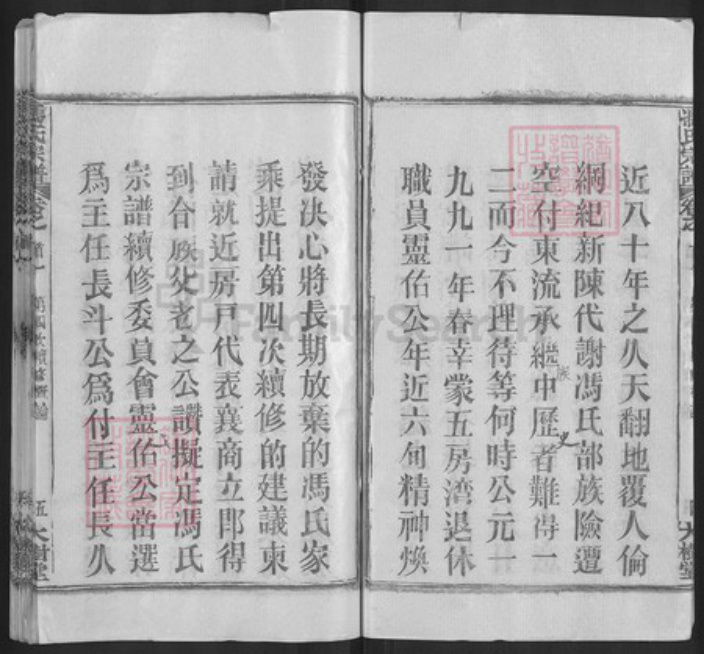 近八十年之久天翻地覆人倫
綱紀新陳代謝馮氏部族險遭
空付東流承繼中歷者難得一
族
史
二而今不理待等何時公元一
九九一年春幸蒙五房湾退休
職員靈佑公年近六旬精神煥
發决心將長期放棄的馮氏家
乘提出第四次續修的建議東
請就近房戸代表襄商立即得
到合族父老之公讚擬定馮氏
宗譜續修委員會靈佑公當選
爲主任長斗公爲付主任長久
氏宗譜
卷之
首一
第四次續修
五
大樹堂
大樹堂
FamilySearch